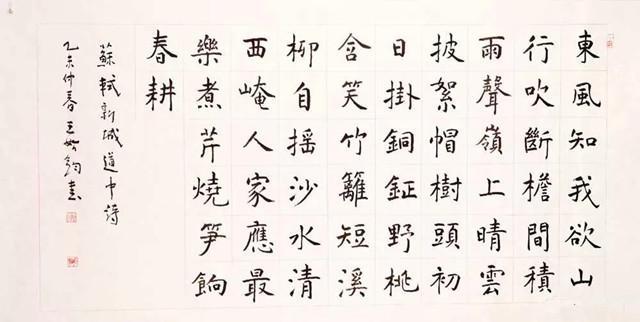 東風知我欲山
行吹斷檐間積
雨聲嶺上晴雲
披絮帽樹頭初
日掛銅鉦野桃
含笑竹籬短溪
柳自摇沙水清
西崦人家應最
樂煮芹燒笋餉
春耕
蘇軾新城道中詩
乙未仲春王鈞書